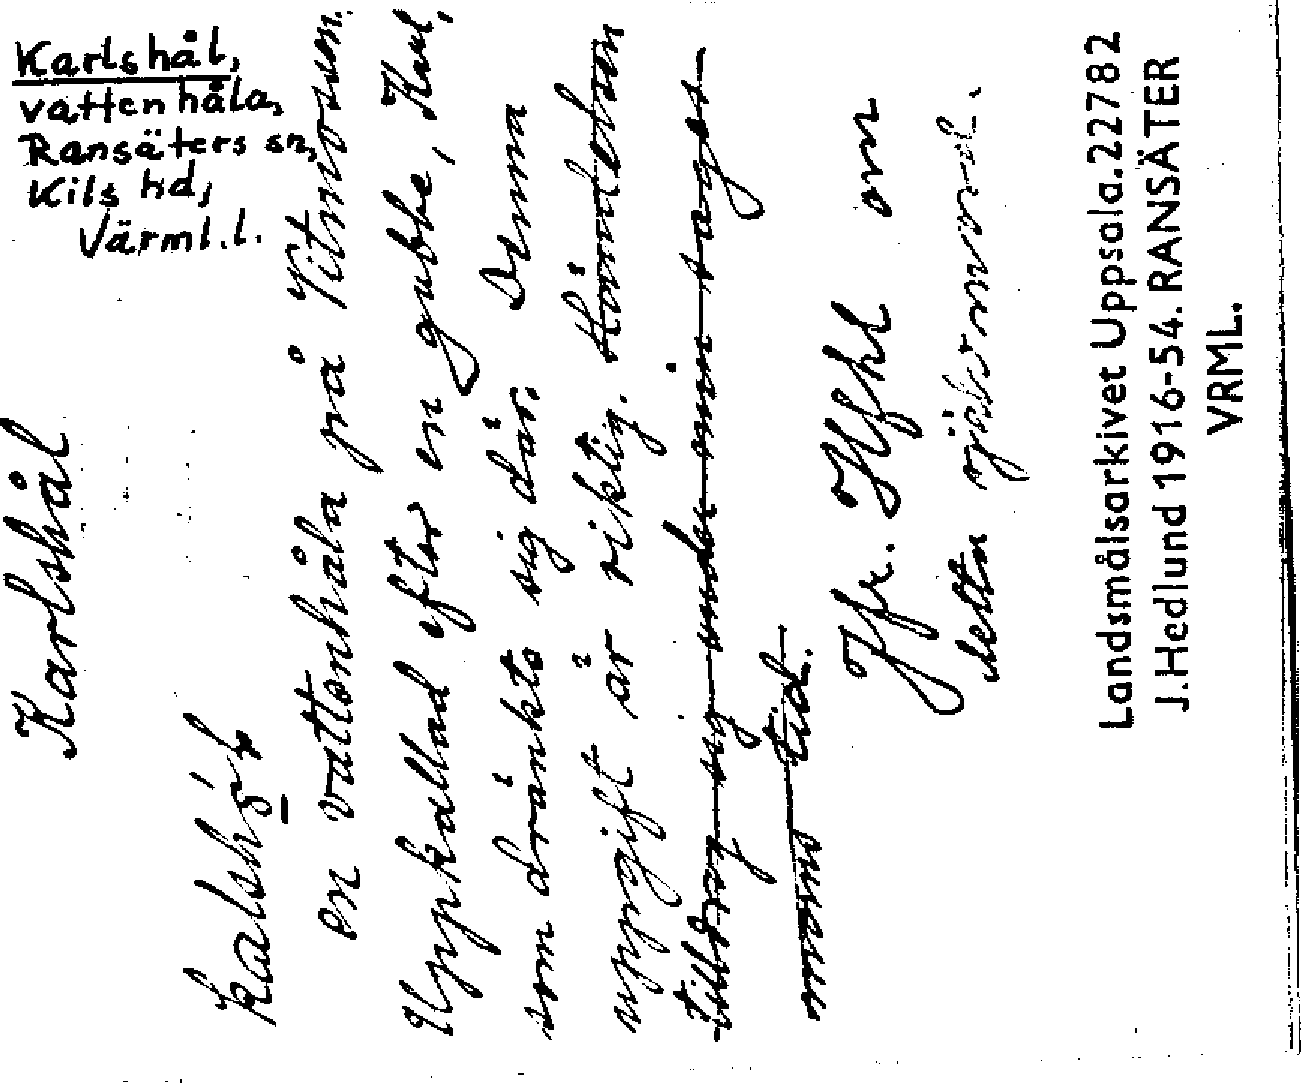 Karlshål,
vattenhåla,
Ransäters sn,
Kils hd,
Värml.l.
Karlshål
en vattenhåla på
Uppkallad efter en gubbe, Karl,
som dränkte sig där. Denna
uppgift är riktig. Händelsen
tilldrog sig under min sages-
mans tid.
Jfr. Hfhl om
detta självmord.
Landsmålsarkivet Uppsala.22782
J.Hedlund 1916-54. RANSÄTER
VRML.